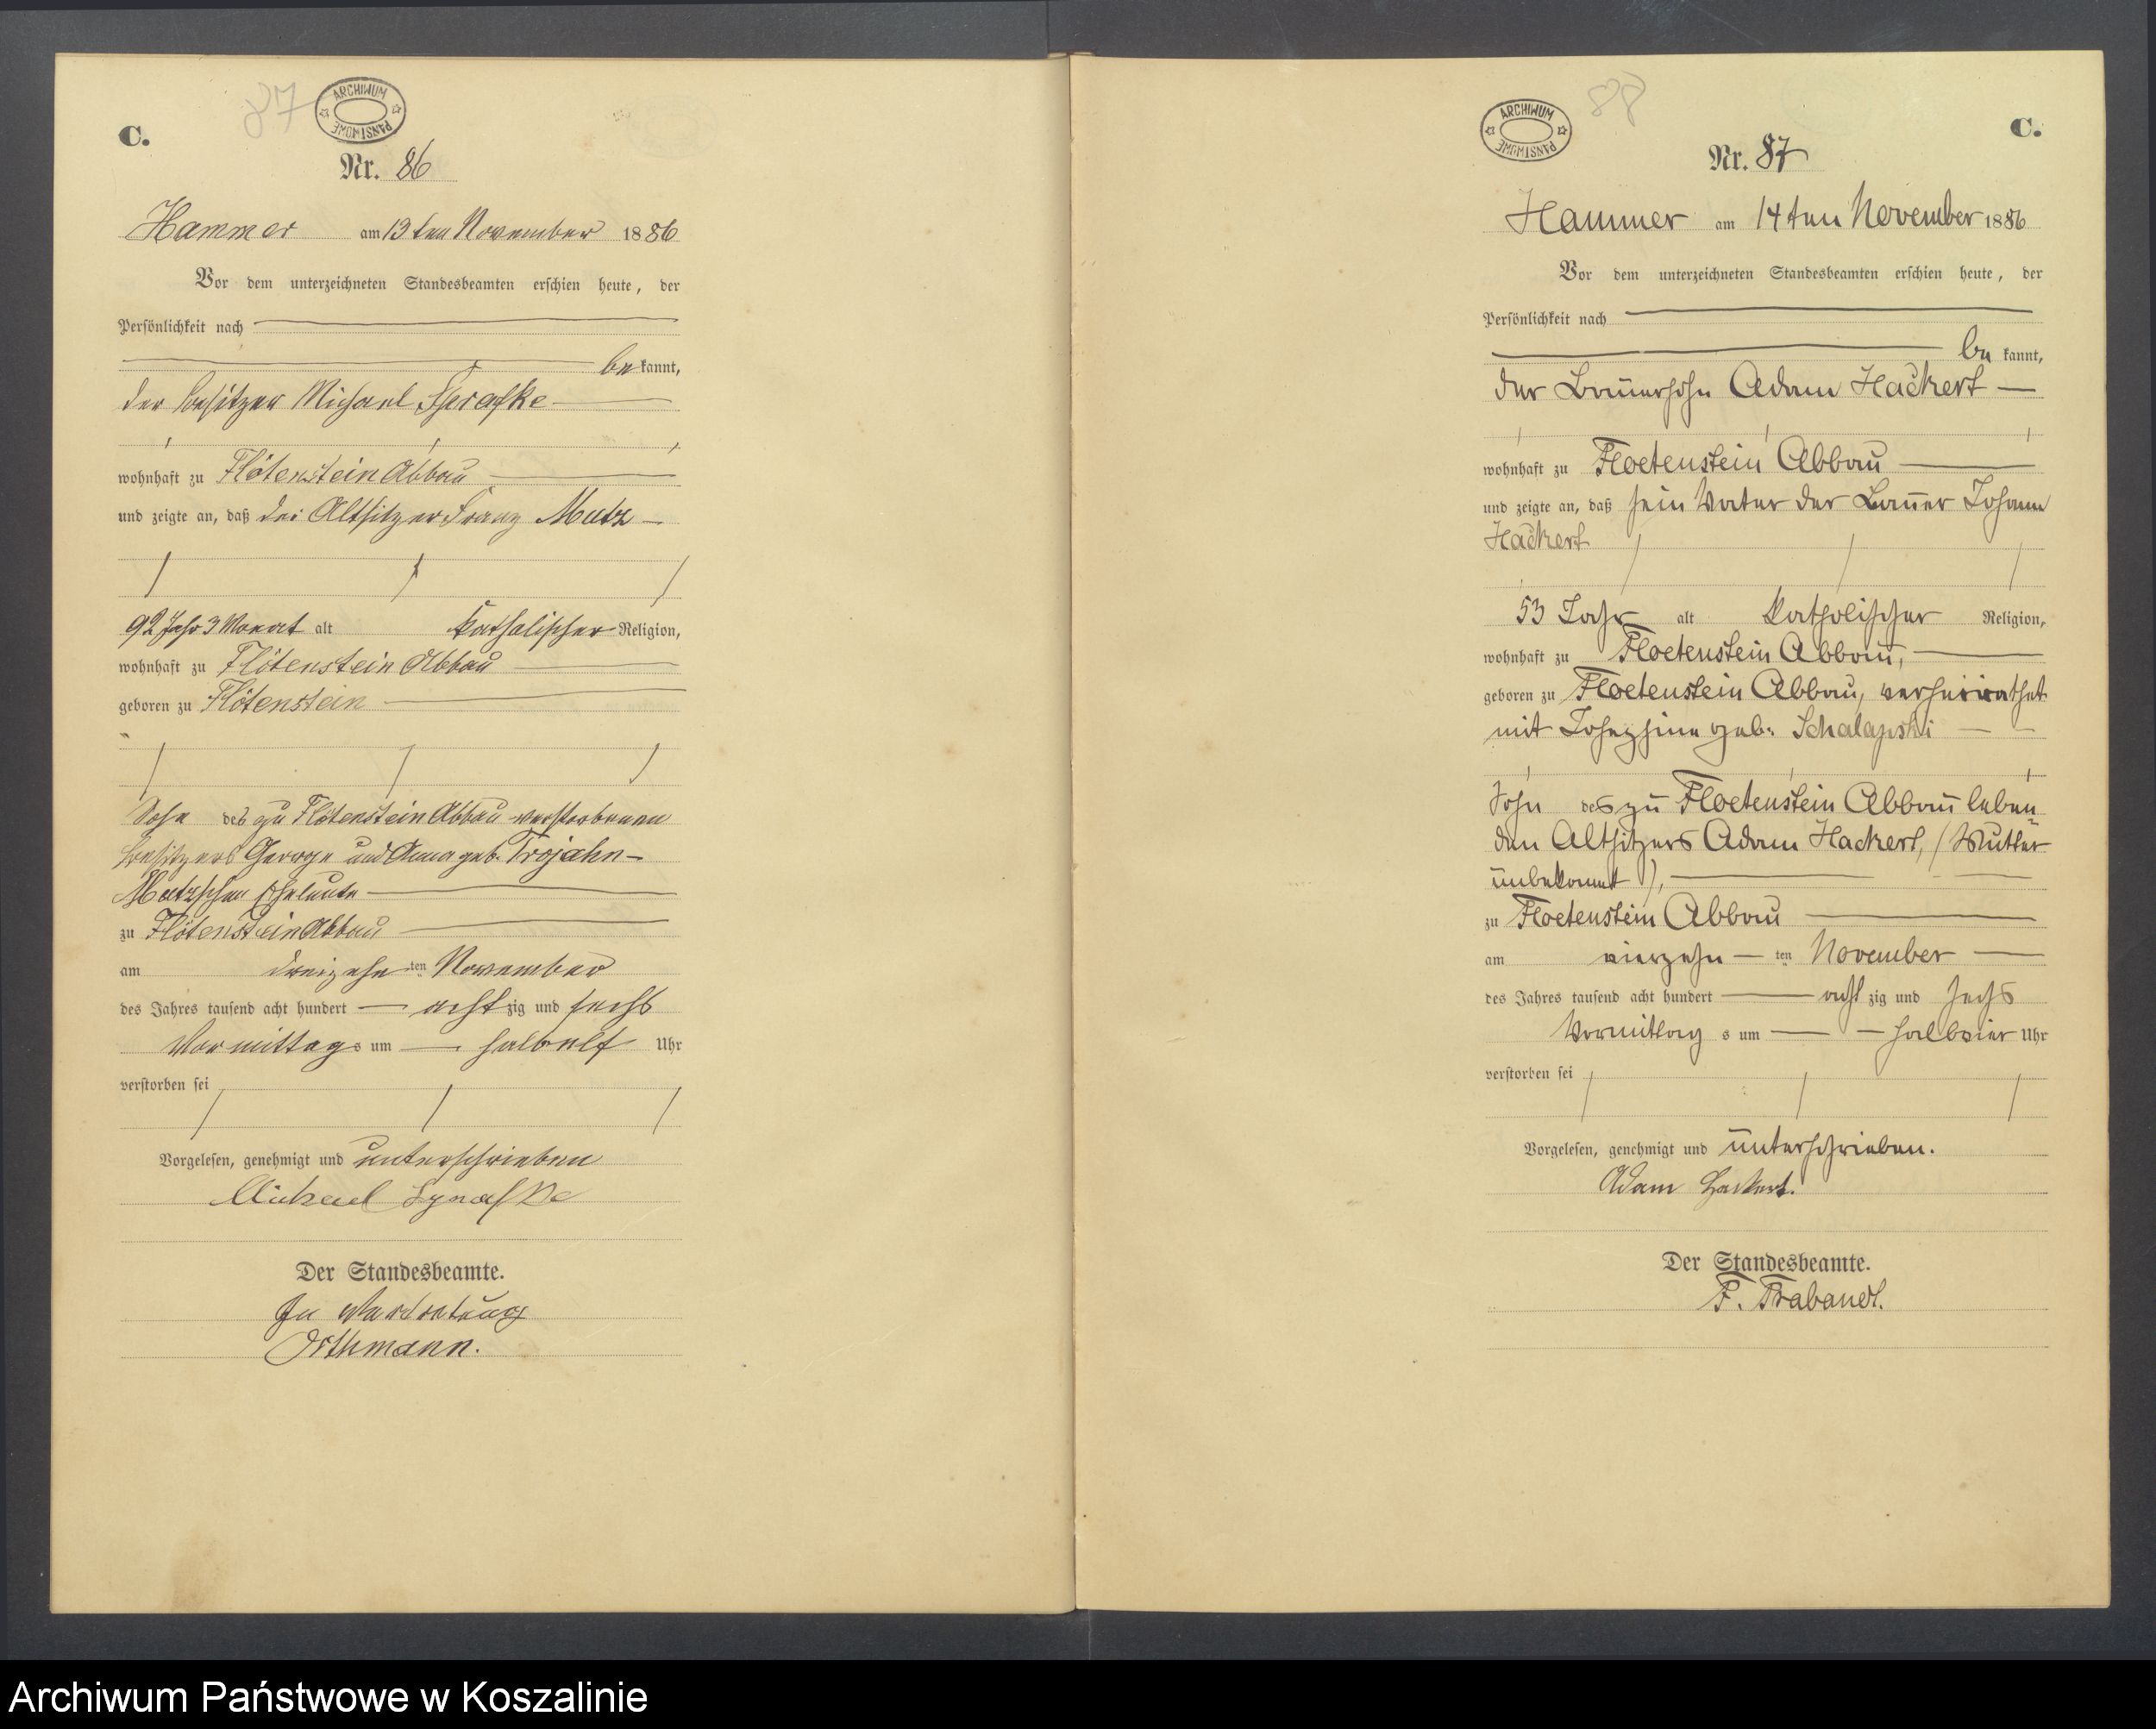 87
ARCHIWUM PAŃSTWOWE
C.
Nr. 86
Hammer am 13 ten November 1886
Vor dem unterzeichneten Standesbeamten erschien heute, der
Persönlichkeit nach
be kannt,
der Besitzer Michael
wohnhaft zu Flötenstein Abbau
und zeigte an, daß der Altsitzer Franz Matz
92 Jahr 3 Monat alt katholischer Religion,
wohnhaft zu Flötenstein Abbau
geboren zu Flötenstein
Sohn des zu Flötenstein Abbau verstorbenen
Besitzers George und Anna geb. Trojahn-
Matzschen Eheleute
zu Flötenstein Abbau
am dreizehn ten November
des Jahres tausend acht hundert acht zig und sechs
Vormittag s um halb elf Uhr
verstorben sei
Vorgelesen, genehmigt und unterschrieben
Michael
Der Standesbeamte.
In Vertretung
Orthmann.
88
ARCHIWUM PAŃSTWOWE
C.
Nr. 87
Hammer am 14 ten November 1886
Vor dem unterzeichneten Standesbeamten erschien heute, der
Persönlichkeit nach
be kannt,
der Bauersohn Adam Hackert
wohnhaft zu Floetenstein Abbau
und zeigte an, daß sein Vater der Bauer Johann
Hackert
53 Jahr alt katholischer Religion,
wohnhaft zu Floetenstein Abbau,
geboren zu Floetenstein Abbau, verheirathet
mit Josephine geb. Schalapski
Sohn des zu Floetenstein Abbau leben
den Altsitzers Adam Hackert, (Mutter
unbekannt),
zu Floetenstein Abbau
am vierzehn ten November
des Jahres tausend acht hundert acht zig und sechs
Vormittag s um halb vier Uhr
verstorben sei
Vorgelesen, genehmigt und unterschrieben.
Adam Hackert.
Der Standesbeamte.
F. Trabandt.
Archiwum Państwowe w Koszalinie